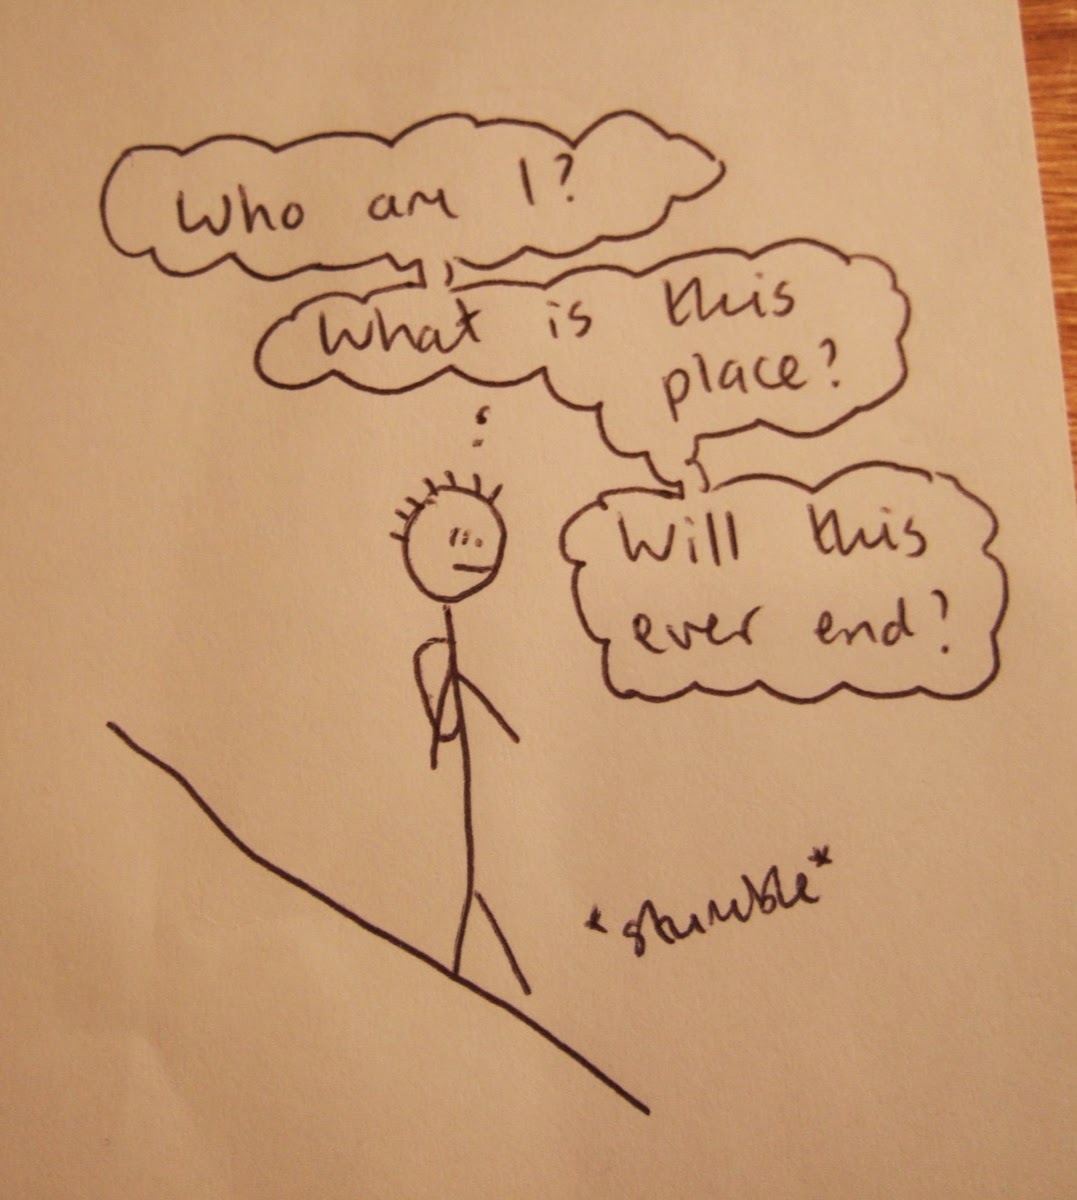 Who am I?
What is this
place?
Will this
ever end?
*stumble*